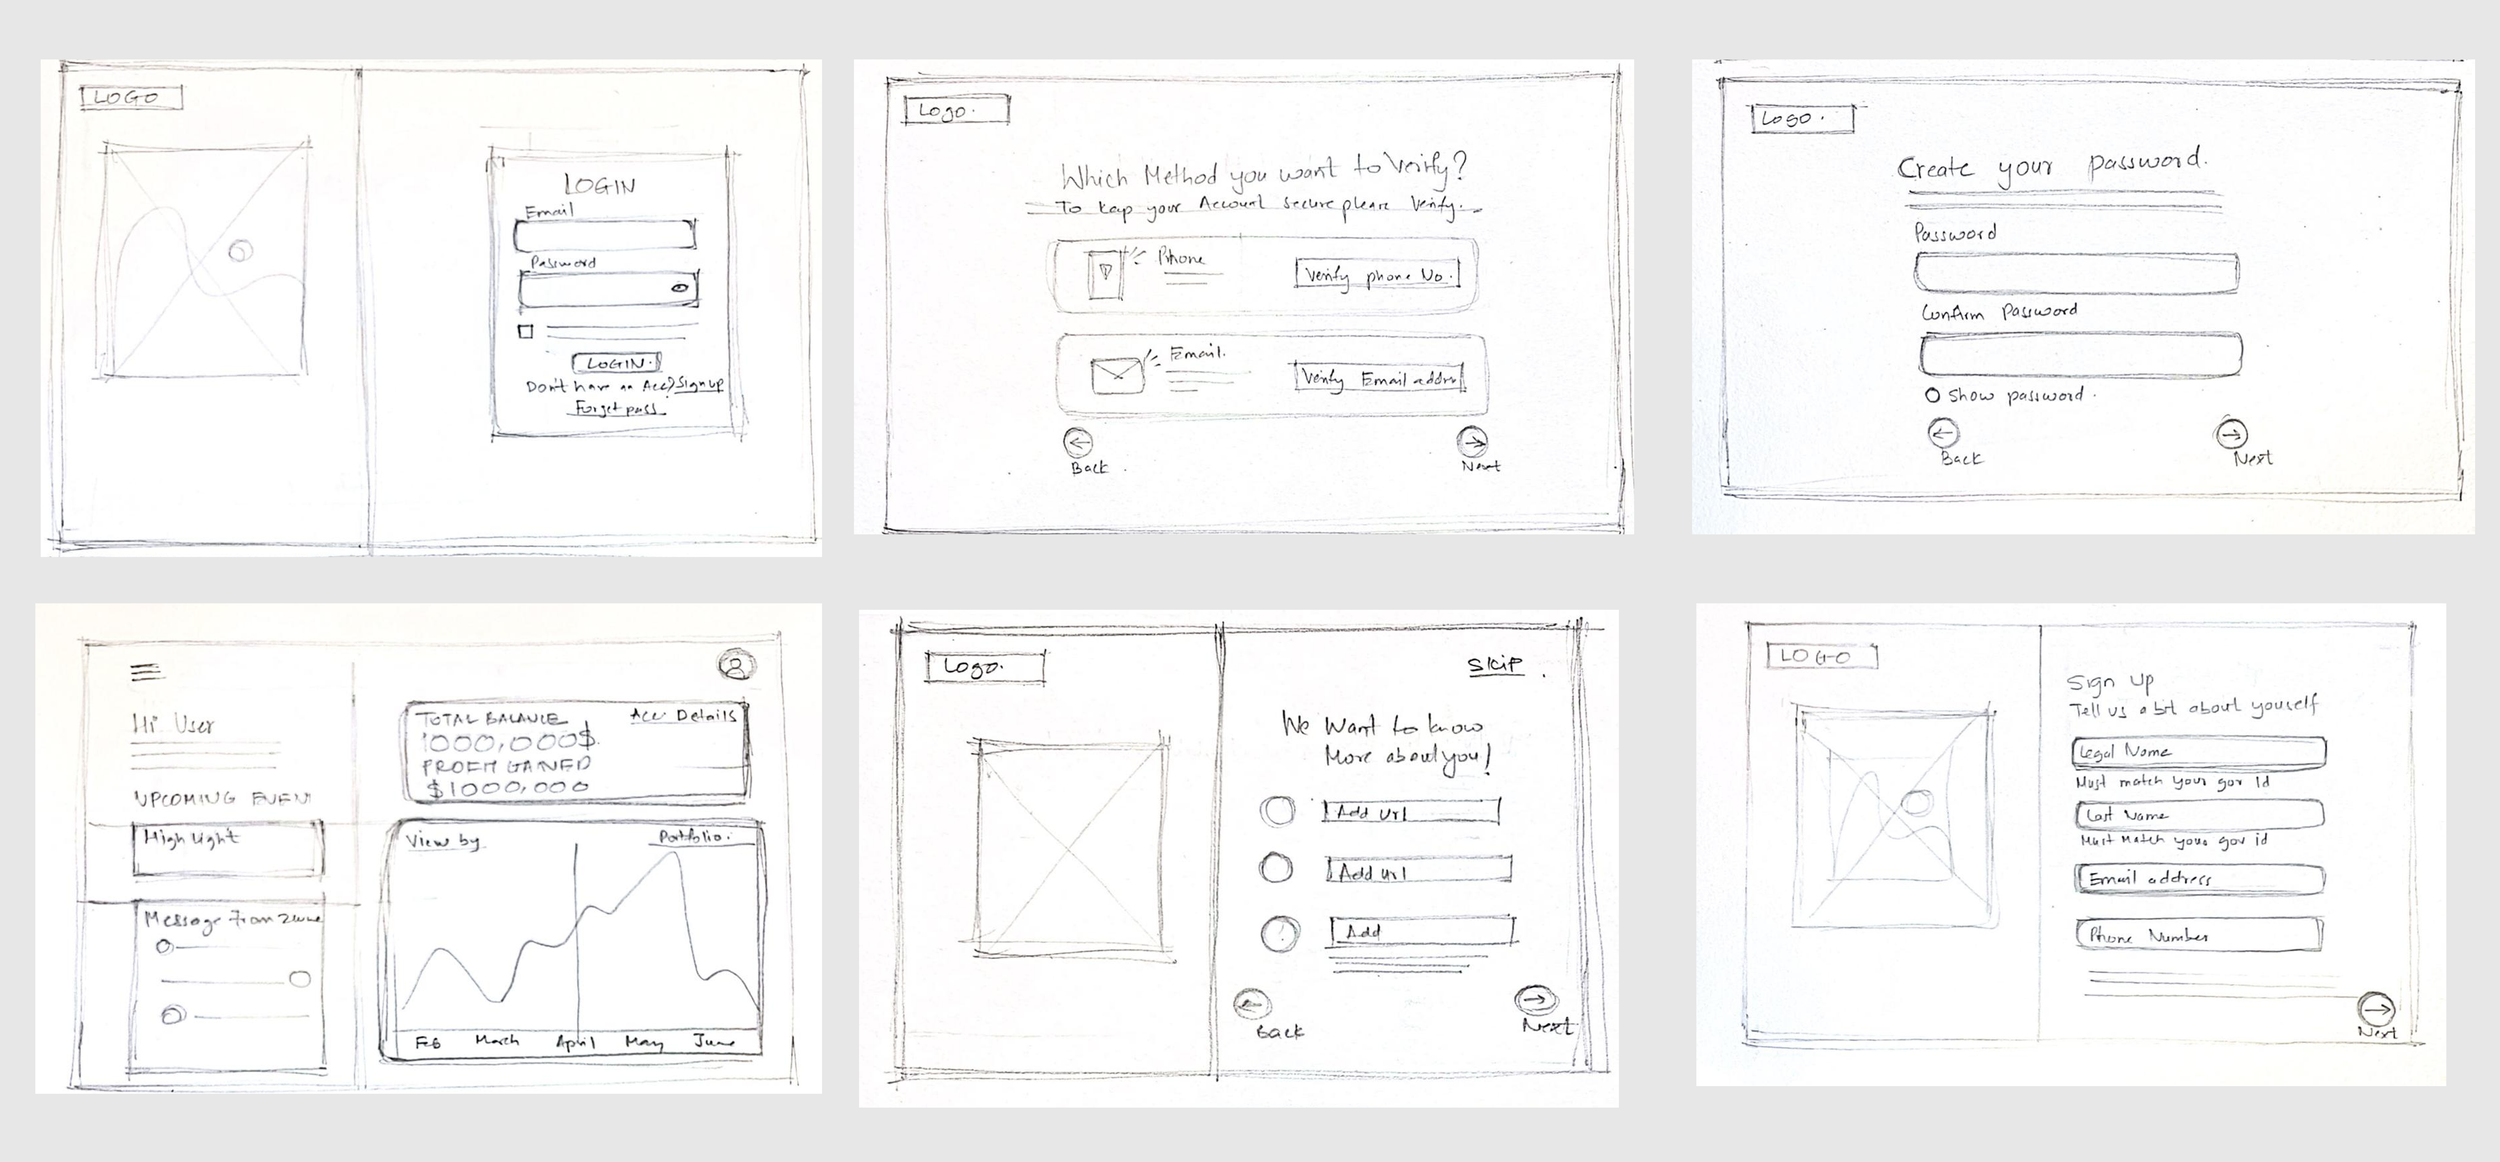 LOGO
LOGIN
Email
Password
LOGIN.
Don't have an Acc? Sign up
Forget pass
Logo.
Which Method you want to Verify?
To kep your Account secure please Verify.
Phone
Verify phone No.
Email.
Verify Email addre
Back.
Next
Logo.
Create your password.
Password
Confirm Password
Show password.
Back
Next
Hi User
UPCOMING EVENT
High light
Message From
TOTAL BALANCE
Acc Details
1000,000$
PROFIT GAINED
$1000,000
View by
Portfolio.
Feb March April May June
Logo.
SKIP
We Want to know
More about you!
Add Url
Add url
Add
Back
Next
LOGO
Sign up
Tell us a bit about youself
Legal Name
Must match your gov id
Last Name
Must Match your gov id
Email address
Phone Number
Next